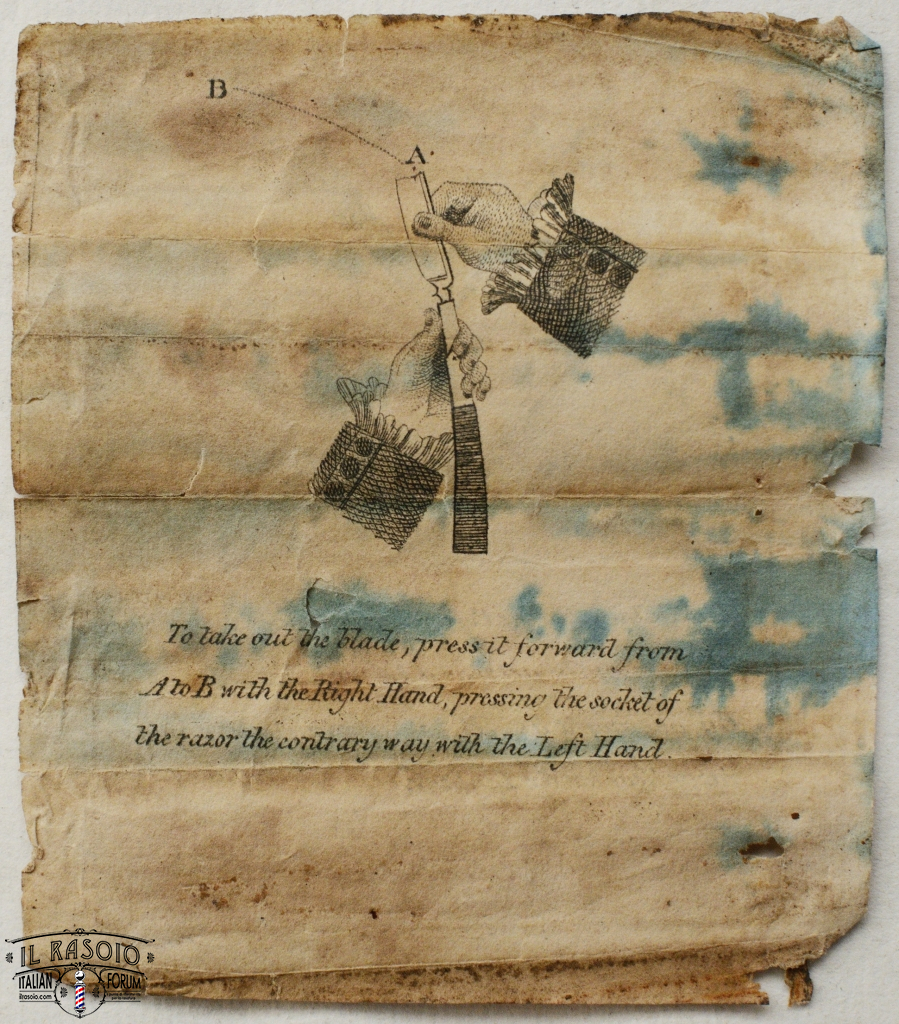 B
A
To take out the blade, press it forward from
A to B with the Right Hand, pressing the socket of
the razor the contrary way with the Left Hand.
IL RASOIO
ITALIAN FORUM
ilrasoio.com